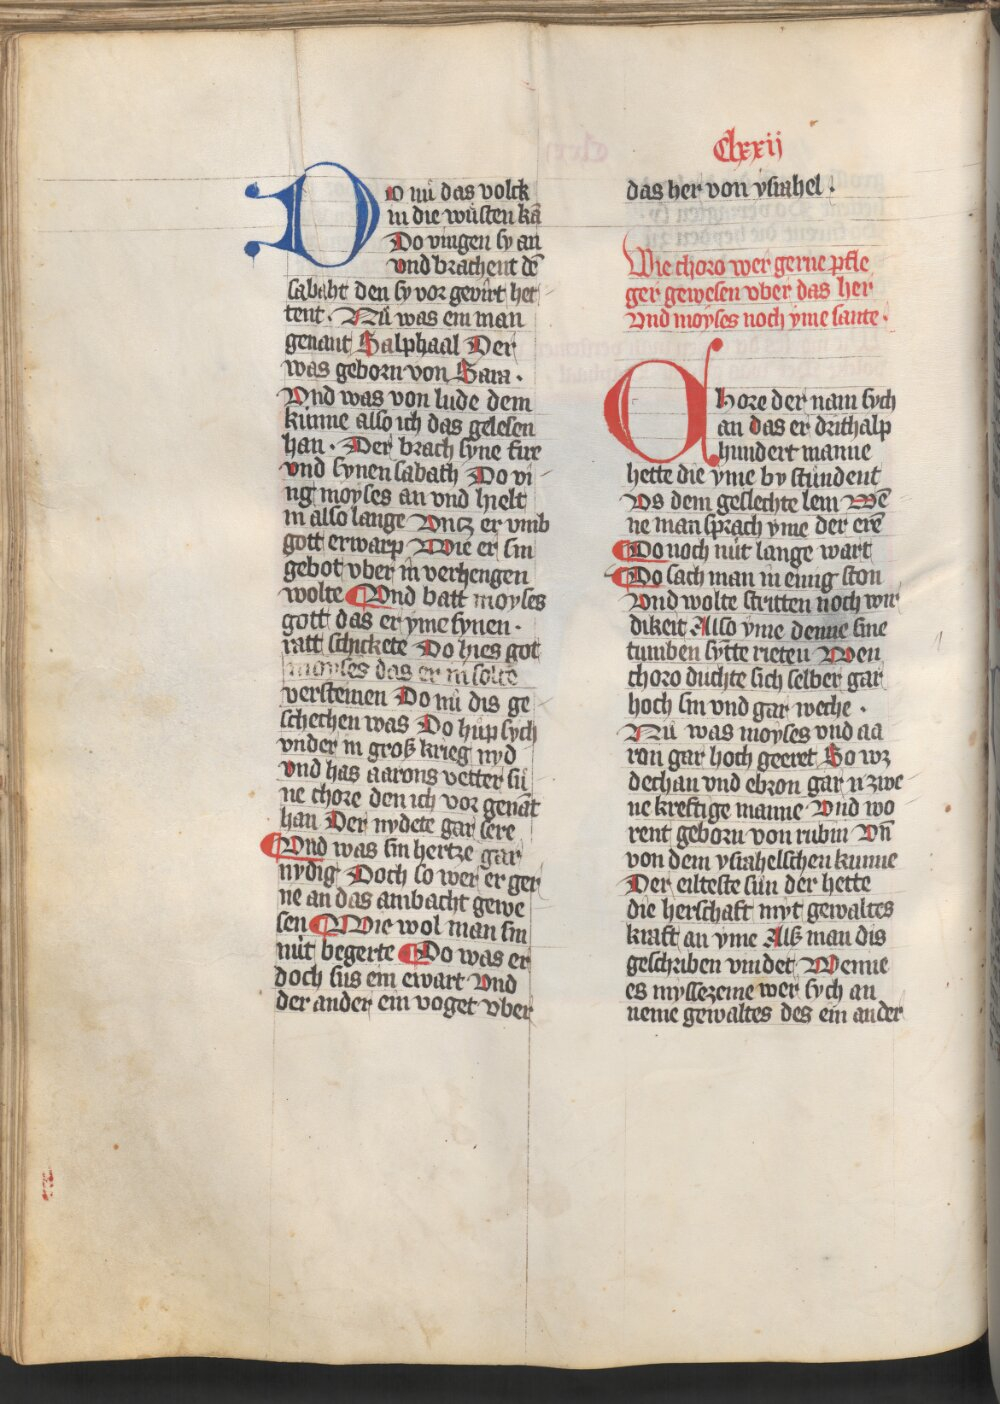 Clxxij
Do nu̍ das volck
in die wu̍sten kā
Do vingen sy an
vnd brachent dē
sabaht den sy vor gevirt het
tent · Nu̍ was ein man
genant Salphaal Der
was geborn von Sara ·
Vnd was von lude dem
ku̍nne also ich das gelesen
han · Der brach syne fire
vnd synen sabath Do vi
ng moyses an vnd hielt
in also lange Vntz er vmb
gott erwarp Wie er sin
gebot vber in verhengen
wolte Vnd batt moyses
gott das er yme synen ·
ratt schickete Do hies got
moyses das er in solte
versteinen Do nu̍ dis ge
schechen was Do hu̍p sych
vnder in groß krieg nyd
vnd has aarons vetter su̍
ne chore den ich vor genāt
han Der nydete gar sere
Vnd was sin hertze gar
nydig Doch so wer er ger
ne an das ambacht gewe
sen Wie wol man sin
nu̍t begerte Do was er
doch su̍s ein ewart Vnd
der ander ein voget vber
das her von ysrahel ·
Wie choro wer gerne pfle
ger gewesen vber das her
Vnd moyses noch yme sante ·
Chore der nam sych
an das er drithalp
hundert manne
hette die yme by stu̍ndent
Vs dem geslechte leui Wē
ne man sprach yme der erē
Do noch nu̍t lange wart
Do sach man in einig ston
Vnd wolte stritten noch wir
dikeit Also yme denne sine
tumben sytte rieten Wen
choro duchte sich selber gar
hoch sin vnd gar weche ·
Nu̍ was moyses vnd aa
ron gar hoch geeret So wz
dechan vnd ebron gar n zwe
ne kreftige manne Vnd wo
rent geborn von rubin Vn̄
von dem ysrahelschen kunne
Der eilteste su̍n der hette
die herschaft myt gewaltes
kraft an yme Alß man dis
geschriben vindet Wenne
es myssezeme wer sych an
neme gewaltes des ein ander